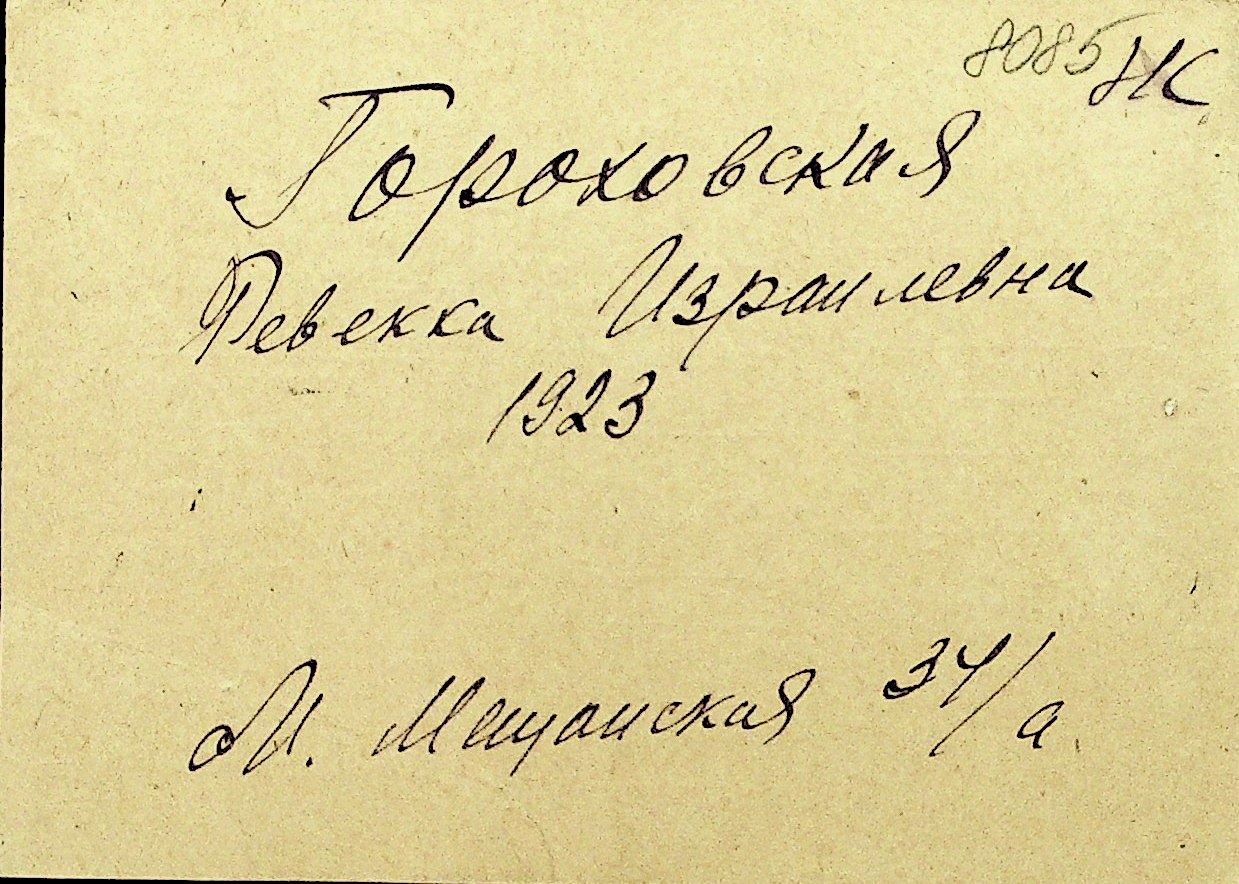 8085 НК
Гороховская
Ревекка Израилевна
1923
М. Мещанская 34/а